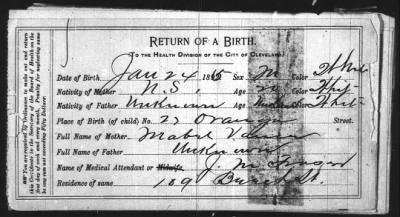 RETURN OF A BIRTH.
(TO THE HEALTH DIVISION OF THE CITY OF CLEVELAND.)
Date of Birth, Jan 24 Sex M Color White
Nativity of Mother U.S. Age Color Whit
Nativity of Father Unknown Age Color Whit
Place of Birth (of child) No. 27 Orange Street.
Full Name of Mother Mabel
Full Name of Father Unknown
Name of Medical Attendant or Midwife, J. M.
Residence of same 109 St.
☞You are required by Ordinance to make out and return
this Certificate to the Secretary of the Board of Health on the
first day of each and every month. Penalty for neglecting same
any sum not exceeding Fifty Dollars.